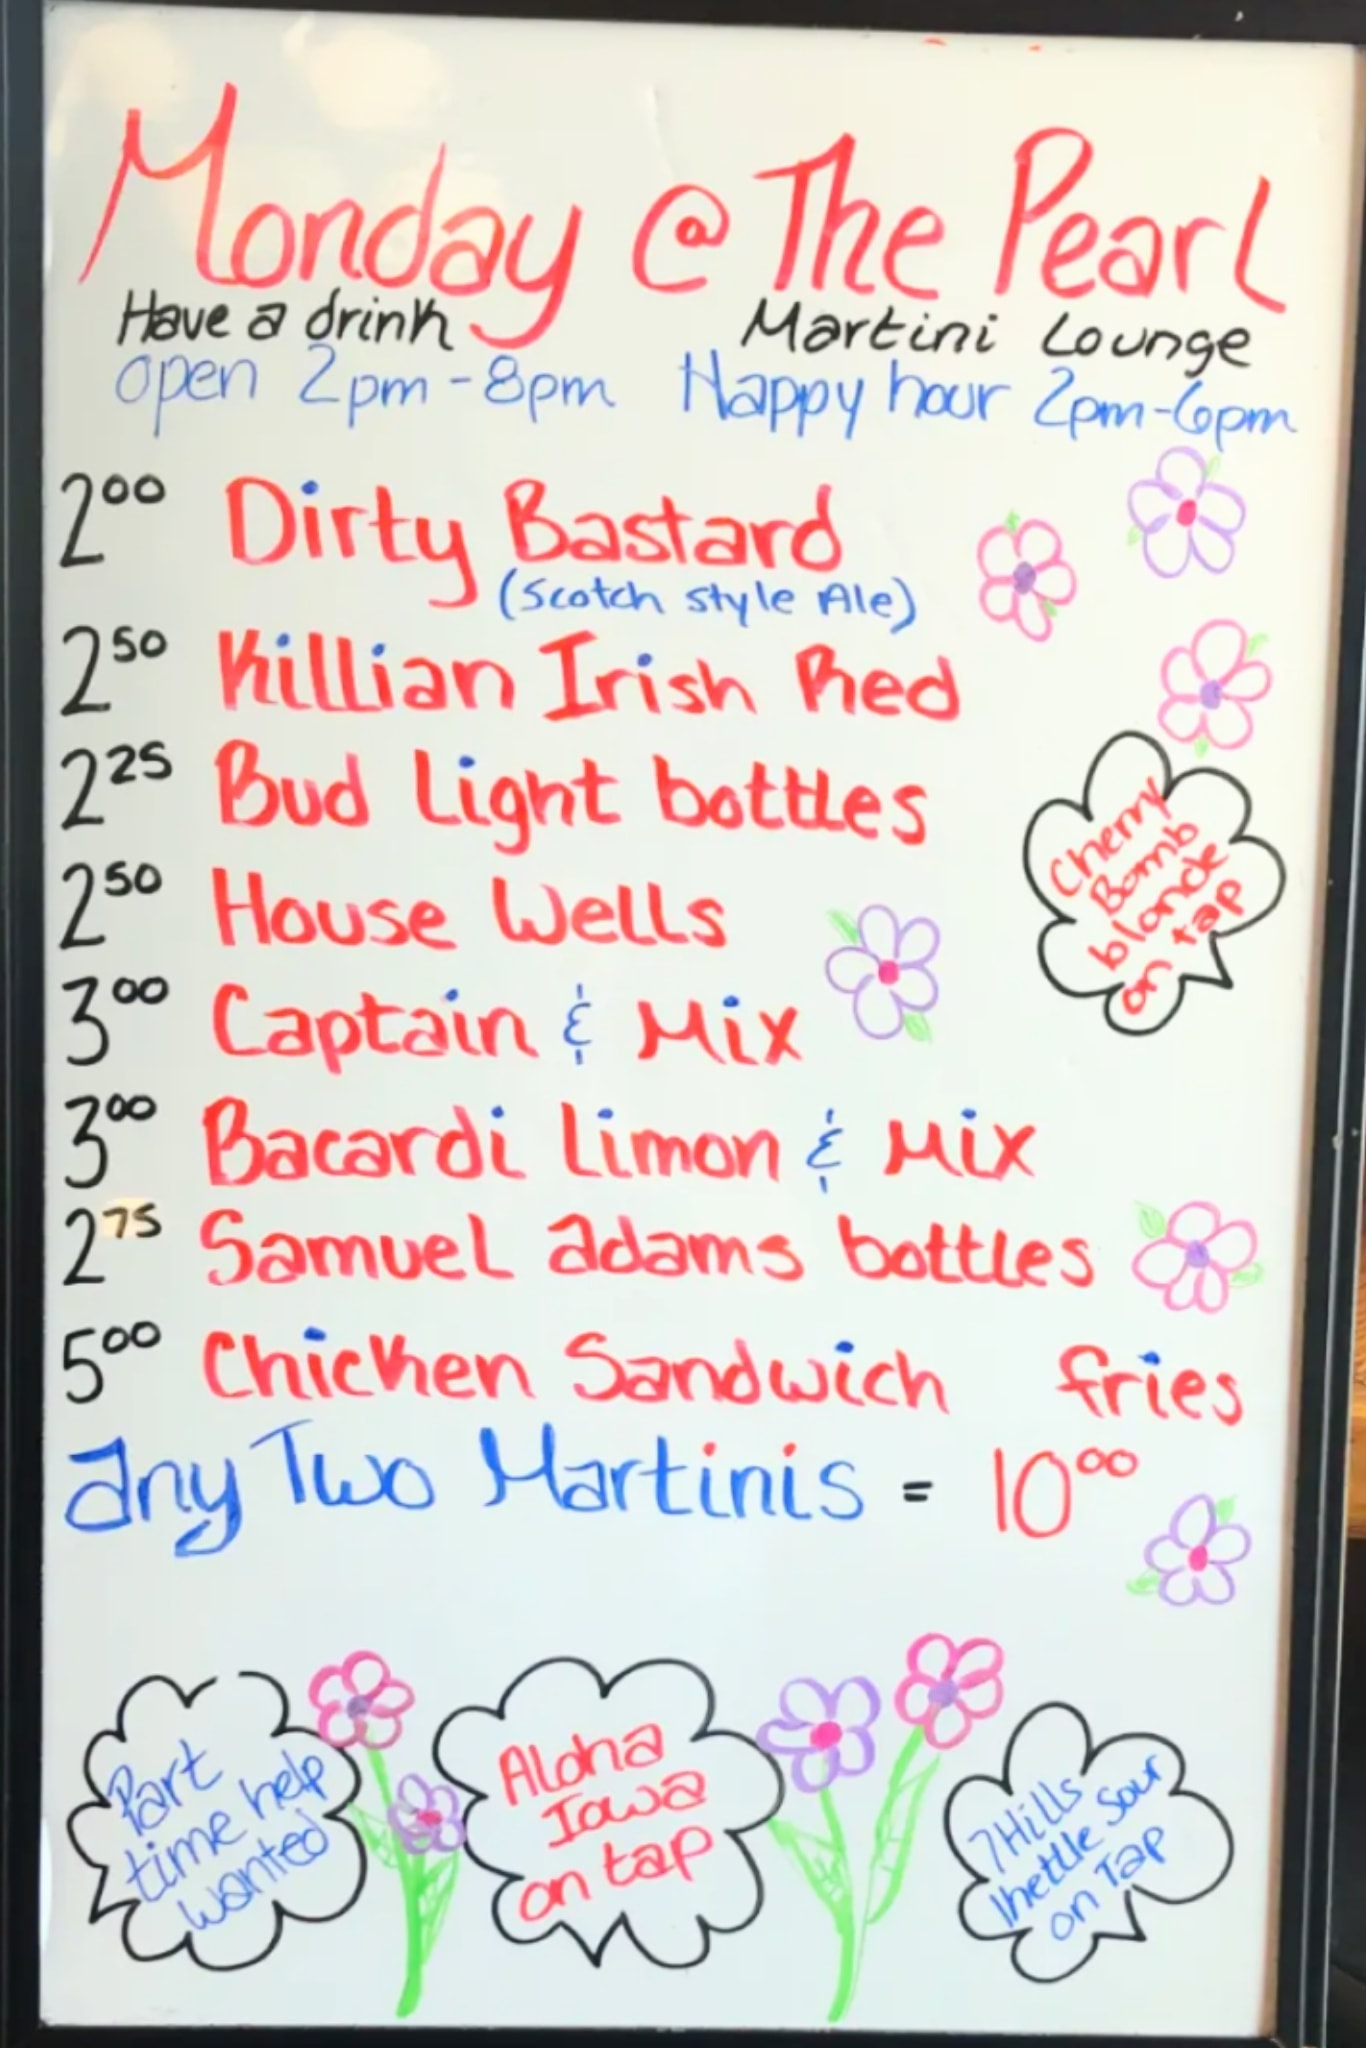 Monday @ The Pearl
Have a drink Martini Lounge
open 2pm-8pm Happy hour 2pm-6pm
2⁰⁰ Dirty Bastard
(Scotch style Ale)
2⁵⁰ Killian Irish Red
2²⁵ Bud Light bottles
2⁵⁰ House Wells
3⁰⁰ Captain & Mix
3⁰⁰ Bacardi Limon & Mix
2⁷⁵ Samuel adams bottles
5⁰⁰ Chicken Sandwich fries
any Two Martinis = 10⁰⁰
Cherry
Bomb
blonde
on tap
Part
time help
wanted
Aloha
Iowa
on tap
7 Hills
Khettle Sour
on Tap